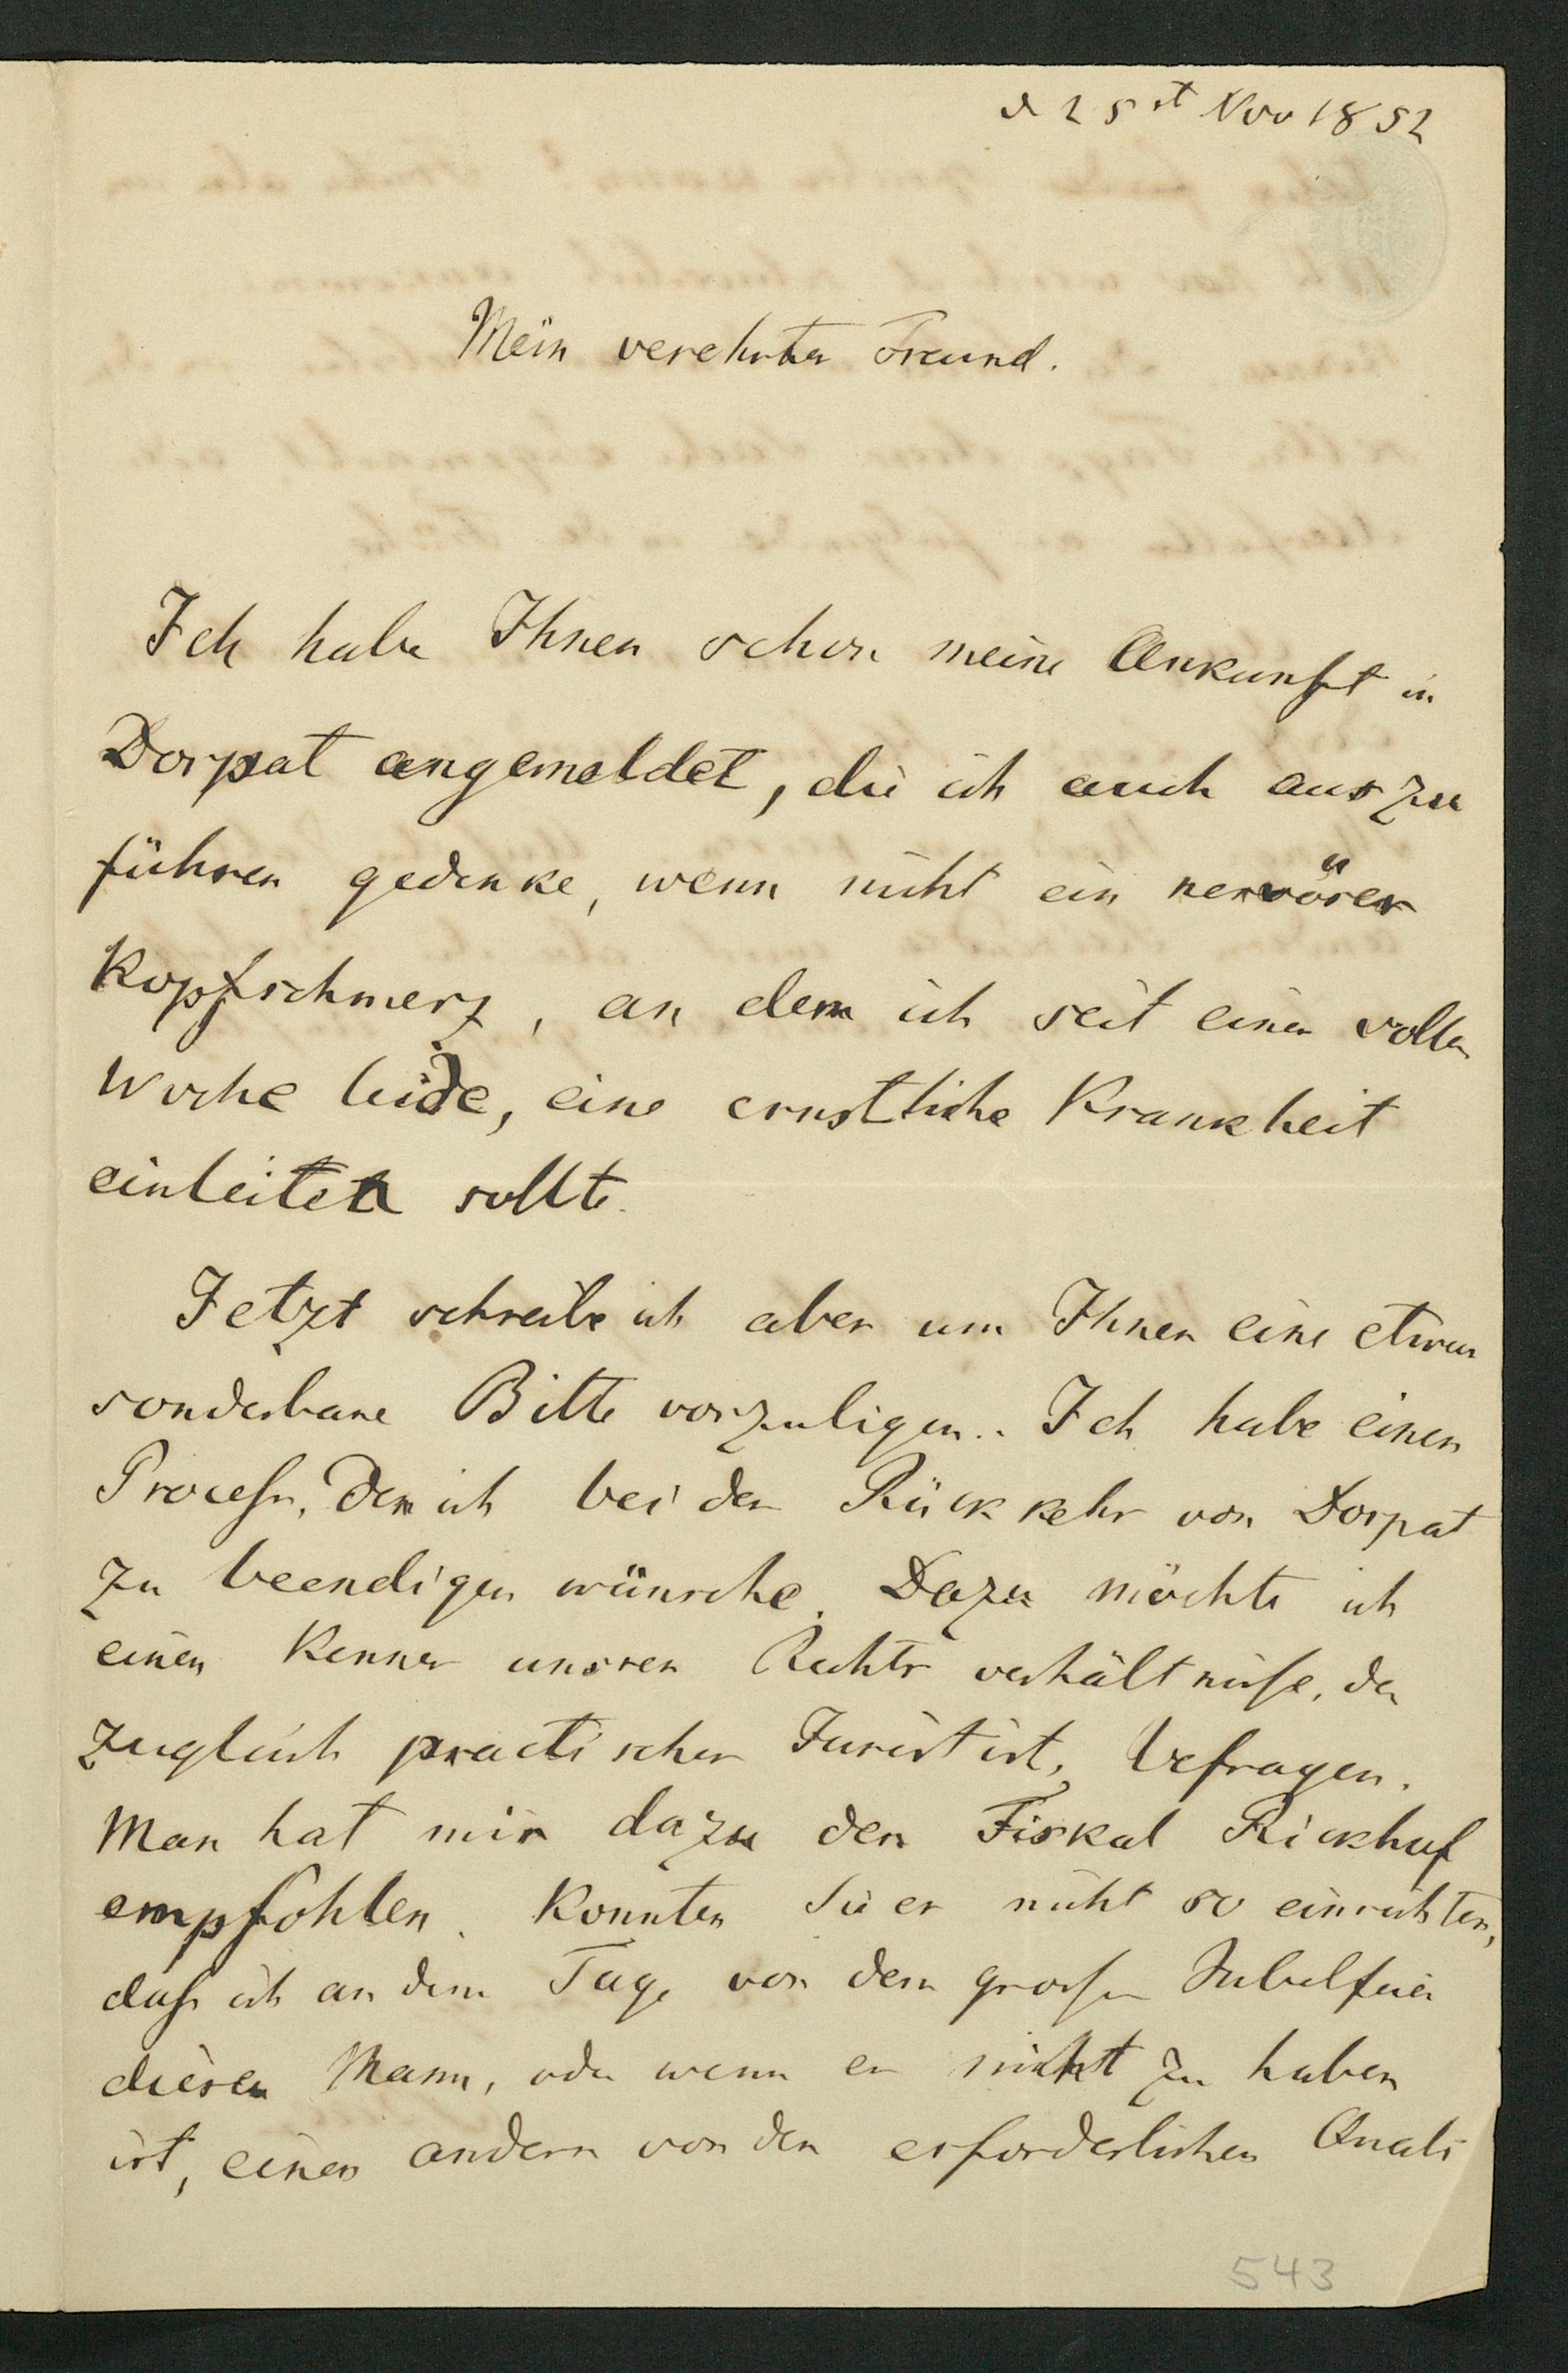 d 25st Nov 1852
Mein verehrter Freund.
Ich habe Ihnen schon meine Ankunft in
Dorpat angemeldet, die ich auch auszu
führen gedenke, wenn nicht ein nervöser
Kopfschmerz, an dem ich seit einer vollen
Woche leide, eine ernstliche Krankheit
einleiten sollte.
Jetzt schreibe ich aber um Ihnen eine etwas
sonderbare Bitte vorzulegen. Ich habe einen
Process, den ich bei der Rückkehr von Dorpat
zu beendigen wünsche. Dazu möchte ich
einen Kenner unsrer Rechtsverhältnisse, der
zugleich practischer Jurist ist, befragen.
Man hat mir dazu den Fiskal Rickhof
empfohlen. Konnten Sie es nicht so einrichten,
dass ich an dem Tage von dem grossen Jubelfeier
diesen Mann, oder wenn er nicht zu haben
ist, einen andern von den erforderlichen Quali
543